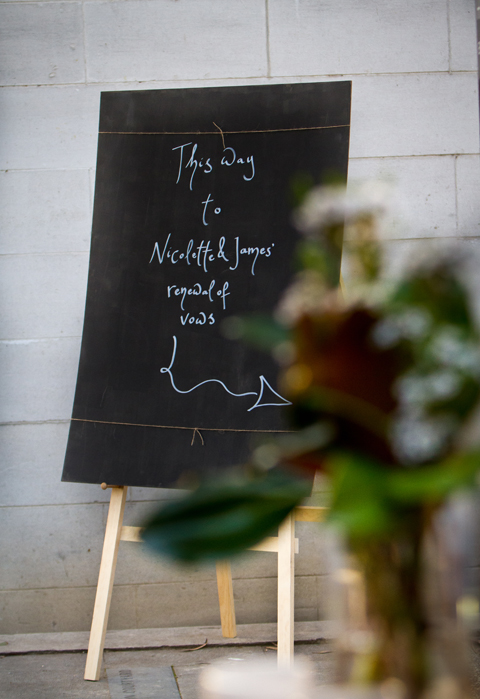 This way
to
Nicolette & James'
renewal of
vows